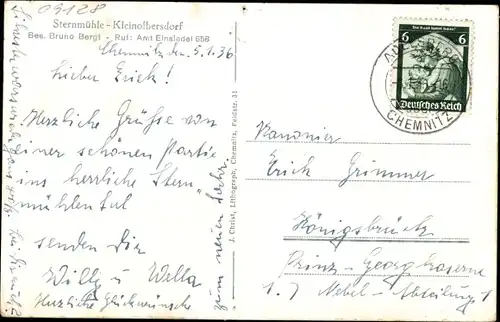 09128
Sternmühle - Kleinolbersdorf
Bes. Bruno Bergt - Ruf: Amt Einsiedel 658
Chemnitz den 5.1.36
Lieber Erich!
Herzliche Grüße von
einer schönen Partie
ins herrliche Stern-
mühlental
senden Dir
Willy u Wella
Herzliche Glückwünsche
zum neuen Jahr
J. Christ, Lithograph, Chemnitz, Feldstr. 31
6 6
Deutsches Reich
CHEMNITZ
Kanonier
Erich Grimmer
Königsbrück
Prinz-Georgkaserne
1. Nebel-Abteilung 1